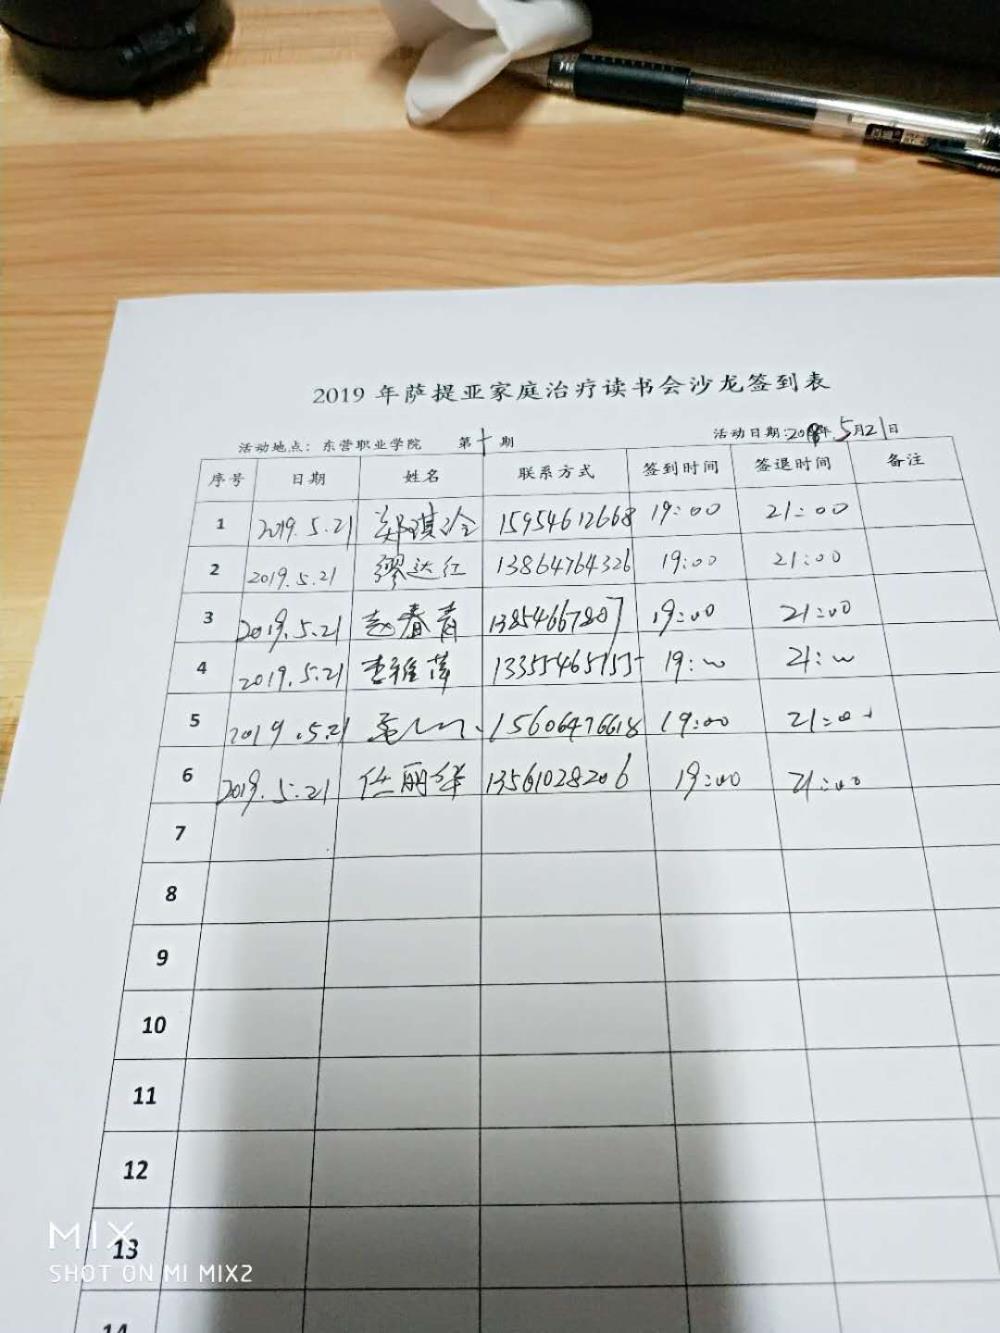 2019 年萨提亚家庭治疗读书会沙龙签到表
活动地点：东营职业学院 第十期 活动日期：2019年5月21日
序号 日期 姓名 联系方式 签到时间 签退时间 备注
1 2019.5.21 郑琪冷 15954612668 19:00 21:00
2 2019.5.21 缪达红 13864764326 19:00 21:00
3 2019.5.21 赵春青 13854667807 19:00 21:00
4 2019.5.21 李雅萍 13355465155 19:00 21:00
5 2019.5.21 15606476618 19:00 21:00
6 2019.5.21 任丽华 13561028206 19:00 21:00
7
8
9
10
11
12
13
14
MIX
SHOT ON MI MIX2